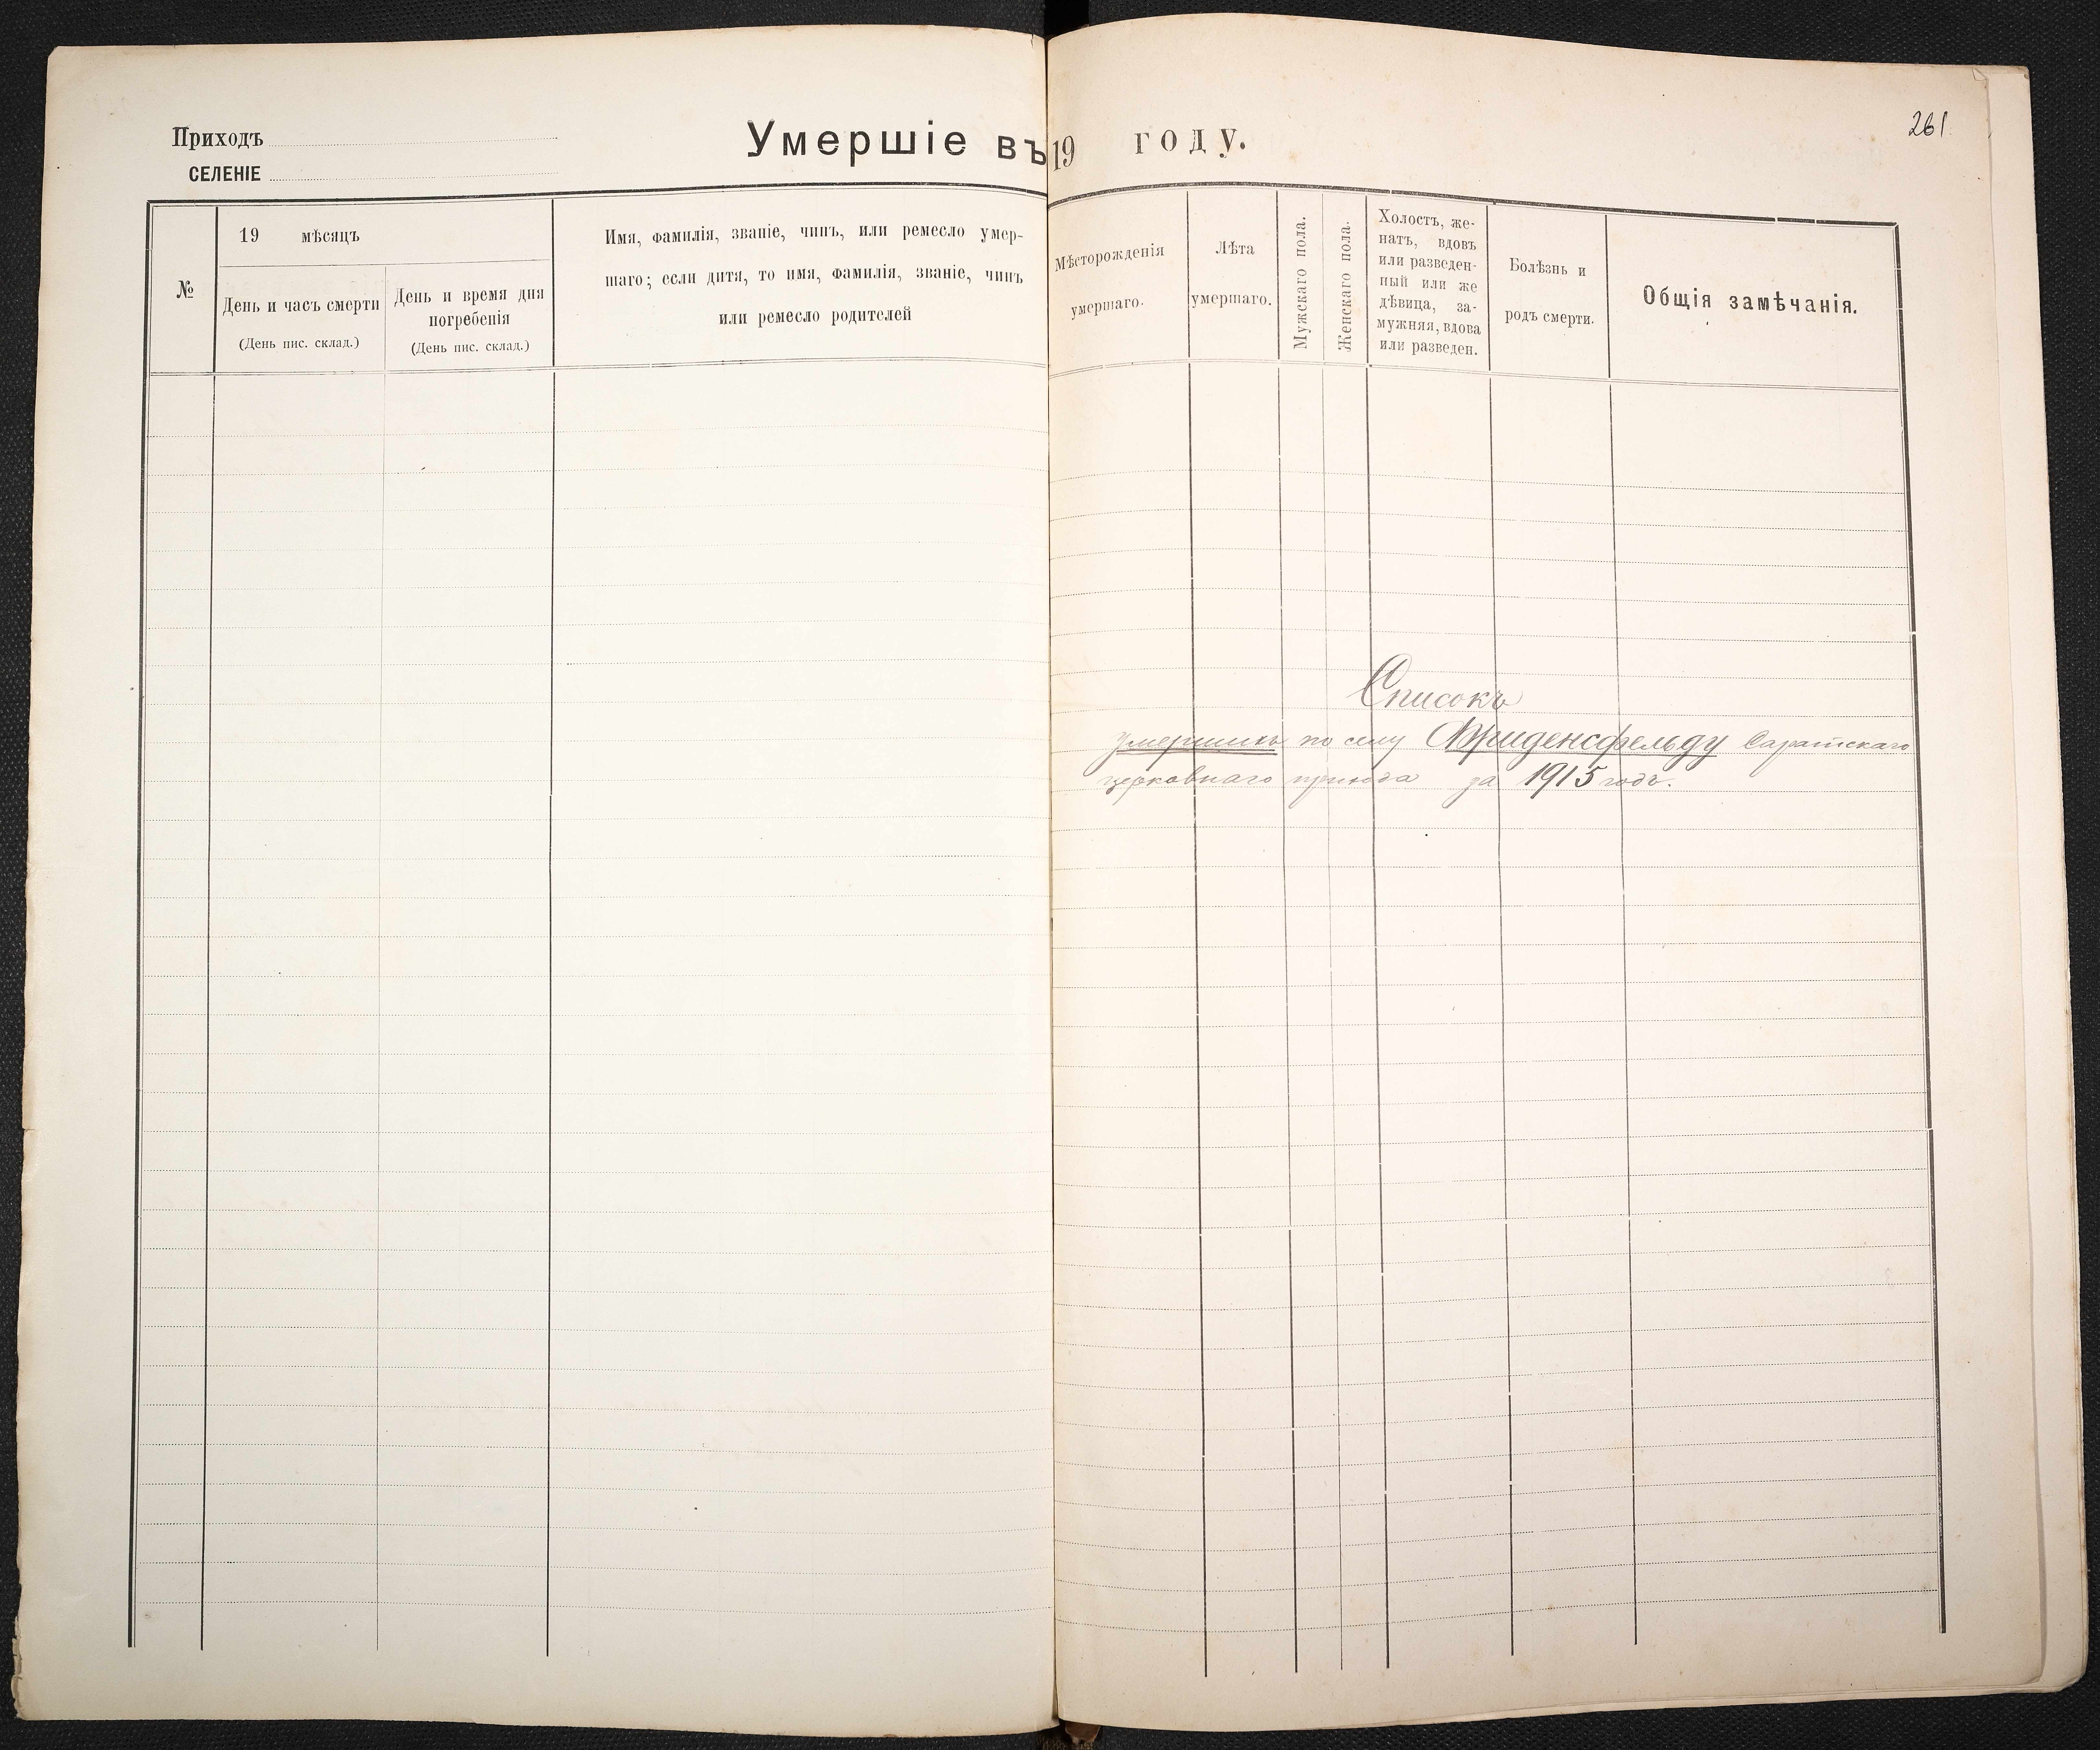 261
Приходъ
СЕЛЕНІЕ
Умершіе въ 19 году.
№
19 мѣсяцъ
День и часъ смерти
(День пис. склад.)
День и время дня
погребенія
(День пис. склад.)
Имя, фамилія, званіе, чинъ, или ремесло умер-
шаго; если дитя, то имя, фамилія, званіе, чинъ
или ремесло родителей
Мѣсторожденія
умершаго.
Лѣта
умершаго.
Мужскаго пола.
Женскаго пола.
Холостъ, же-
натъ, вдовъ
или разведен-
ный или же
дѣвица, за-
мужняя, вдова
или разведен.
Болѣзнь и
родъ смерти.
Общія замѣчанія.
Списокъ
умершихъ по селу Фриденсфельду Саратскаго
церковнаго прихода за 1915 годъ.